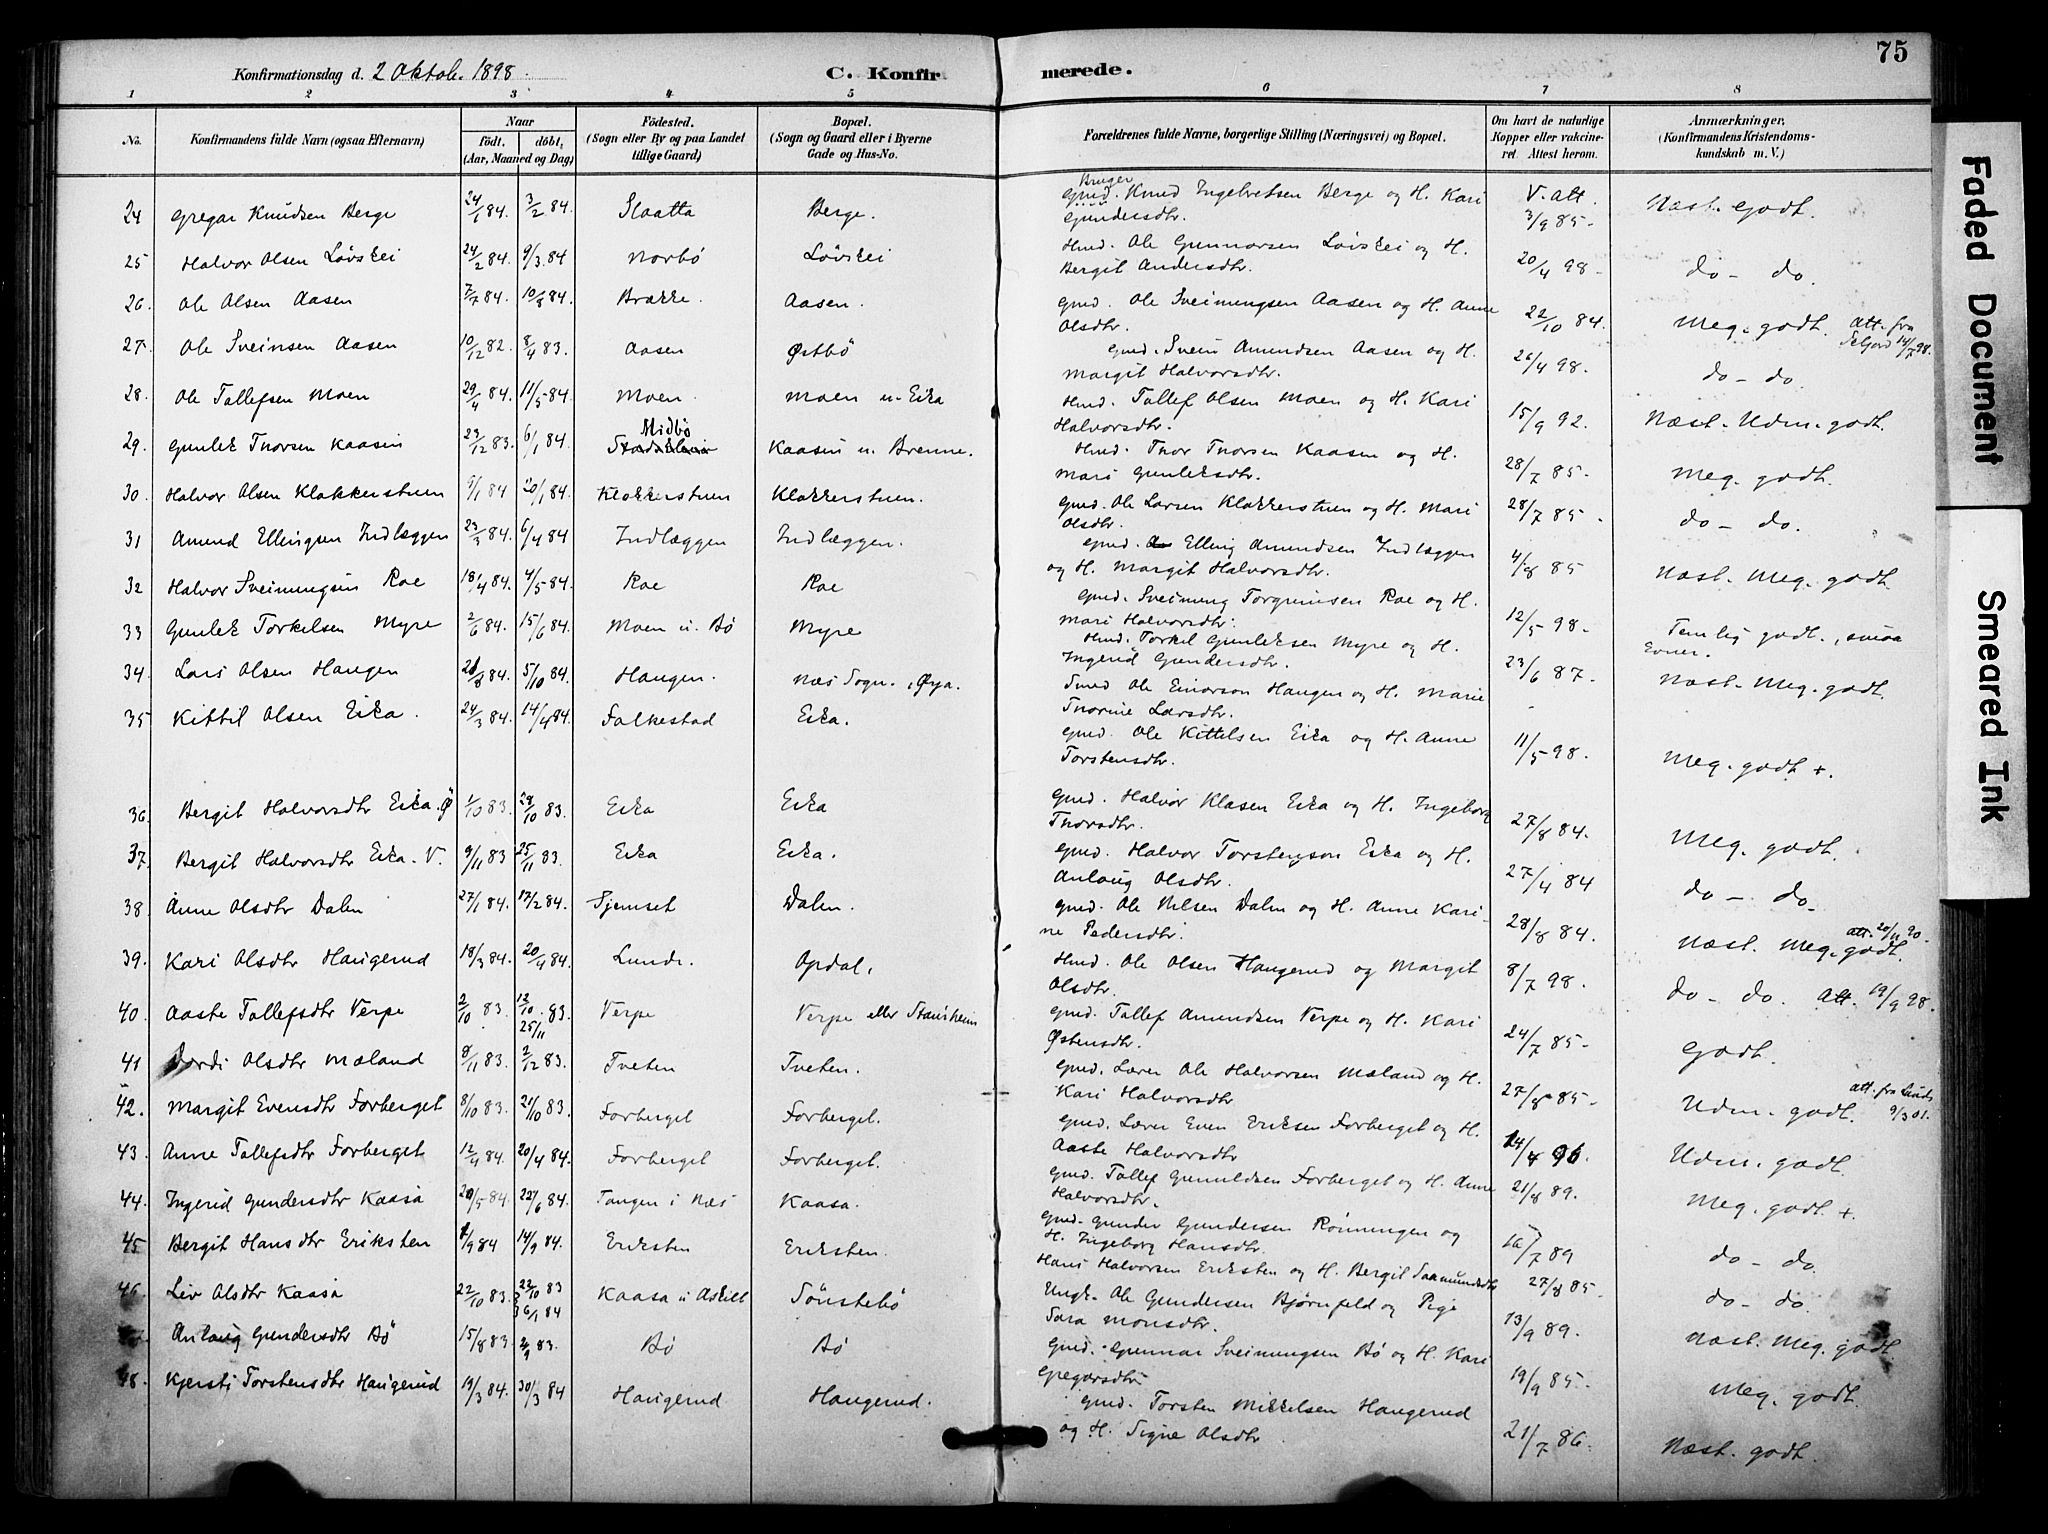 75
Konfirmationsdag d. 2 Oktob. 1898.
C. Konfirmerede.
1 2 3 4 5 6 7 8
No. Konfirmandens fulde Navn (ogsaa Efternavn) Naar født, døbt, (Aar, Maaned og Dag) Fødested. (Sogn eller By og paa Landet tillige Gaard) Bopæl. (Sogn og Gaard eller i Byerne Gade og Hus-No. Forældrenes fulde Navne, borgerlige Stilling (Næringsvei) og Bopæl. Om havt de naturlige Kopper eller vakcineret Attest herom. Anmærkninger. (Konfirmandens Kristendomskundskab m. V.)
24 Gregar Knudsen Berge 24/1 84. 3/2 84. Slaatta Berge. Bruger Gmd. Knud Ingebretsen Berge og H. Kari Gundersdtr. V. att. 3/9 85- Næst. godt.
25 Halvor Olsen Løvskei 24/2 84. 9/3 84 Norbø Løvskei Hmd. Ole Gunnarsen Løvskei og H. Bergit Andersdtr. 20/4 98- do - do.
26. Ole Olsen Aasen 7/7 84. 10/8 84. Brække. Aasen. Gmd. Ole Sveinungsen Aasen og H. Anne Olsdtr. 22/10 84. Meg. godt. Att. fra Seljord 14/7 98.
27. Ole Sveinsen Aasen 10/12 82. 8/4 83. Aasen Østbø Gmd. Svein Amundsen Aasen og H. Margit Halvorsdtr. 26/4 98. do - do.
28. Ole Tallefsen Moen 29/4 84. 11/5 84. Moen. Moen u. Eika Hmd. Tallef Olsen Moen og H. Kari Halvorsdtr. 15/9 92. Næst. Udm. godt.
29. Gunlek Thorsen Kaasin 23/12 83. 6/1 84. Midbø Kaasin u. Brenne. Hmd. Thor Thorsen Kaasen og H. Mari Gunleksdtr. 28/7 85- Meg. godt.
30. Halvor Olsen Klokkerstuen 9/1 84 20/1 84. Klokkerstuen Klokkerstuen. Gmd. Ole Larsen Klokkerstuen og H. Mari Olsdtr. 28/7 85- do - do.
31 Amund Ellingsen Indlæggen 23/3 84. 6/4 84 Indlæggen Indlæggen. Gmd. Elling Amundsen Indlæggen og H. Margit Halvorsdtr. 4/8 85 Næst. Meg. godt.
32 Halvor Sveinungsen Roe 18/4 84. 4/5 84. Roe Roe Gmd. Sveinung Torgrimsen Roe og H. Mari Halvorsdtr. 12/5 98. Temlig godt., smaa Evner.
33 Gunlek Torkelsen Myre 2/6 84. 15/6 84. Moen u. Bø Myre Hmd. Torkel Gunleksen Myre og H. Ingerid Gundersdtr. 23/6 87. Næst. Meg. godt.
34. Lars Olsen Haugen 21/8 84. 5/10 84. Haugen. Næs Sogn., Øya. Smed Ole Einarson Haugen og H. Marie Thorine Larsdtr. -
35 Kittil Olsen Eika. 24/3 84. 14/4 84. Folkestad Eika. Gmd. Ole Kittelsen Eika og H. Anne Torstensdtr. 11/5 98. Meg. godt +.
36. Bergit Halvorsdtr Eika. Ø 1/10 83 28/10 83. Eika Eika Gmd. Halvor Klasen Eika og H. Ingeborg Thorsdtr. 27/8 84. Meg. godt.
37. Bergit Halvorsdtr Eika. V. 9/11 83 25/11 83. Eika Eika. Gmd. Halvor Torstenson Eika og H. Anlaug Olsdtr. 27/4 84 do - do.
38. Anne Olsdtr Dalen 27/1 84. 17/2 84. Sjemset Dalen. Gmd. Ole Nilsen Dalen og H. Anne Karine Pedersdtr. 28/8 84. Næst. Meg. godt. att. 20/11 90.
39. Kari Olsdtr Haugerud 18/3 84. 20/4 84. Lunde. Opdal. Hmd. Ole Olsen Haugerud og Margit Olsdtr. 8/7 98. do - do. Att. 19/9 98.
40. Aaste Tallefsdtr Verpe 2/10 83. 12/10 83. 25/11 Verpe Verpe eller Stausheim Gmd. Tallef Amundsen Verpe og H. Kari Østensdtr. 24/7 85- Godt.
41 Dordi Olsdtr Mæland 8/11 83. 2/12 83. Tveten Tveten. Gmd. Lærer Ole Halvorsen Mæland og H. Kari Halvorsdtr 27/8 85- Udm. godt. att. fra Lunde 9/3 01.
42. Margit Evensdtr Forberget 8/10 83. 21/10 83. Forberget Forberget. Gmd. Lærer Even Eriksen Forberget og H. Aaste Halvorsdtr 14/8 96. Udm. godt.
43. Anne Tallefsdtr Forberget 12/4 84. 20/4 84. Forberget Forberget. Gmd. Tallef Gunuldsen Forberget og H. Anne Halvorsdtr. 21/8 89. Meg. godt +.
44. Ingerid Gundersdtr Kaasa 20/5 84. 22/6 84. Tangen i Næs Kaasa. Gmd. Gunder Gundersen Rønningen og H. Ingeborg Hansdtr. 16/7 89 do - do.
45 Bergit Hansdtr Eriksten 1/9 84 14/9 84. Eriksten Eriksten. Hans Halvorsen Eriksten og H. Bergit Saamundsdtr 27/8 85. do - do.
46. Liv Olsdtr Kaasa 22/10 83. 22/10 83 36/1 84 Kaasa u Askilt Sønstebø Ungk. Ole Gundersen Bjørnfeld og Pige Sara Monsdtr. 13/9 89. Næst. Meg. godt.
Anlaug Gundersdtr Bø 15/8 83. 2/9 83. Bø Bø Gmd. Gunnar Sveinungsen Bø og H. Kari Gregarsdtr 19/9 85. Meg. godt.
98. Kjersti Torstensdtr Haugerud 19/3 84. 30/3 84 Haugerud Haugerud. Gmd. Torsten Mikkelsen Haugerud og H. Signe Olsdtr 21/7 86. Næst. godt.
Faded Document
Smeared Ink